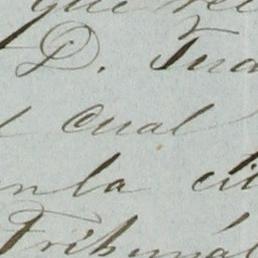 que
D. Jua
cual
en la ci
Tribunal